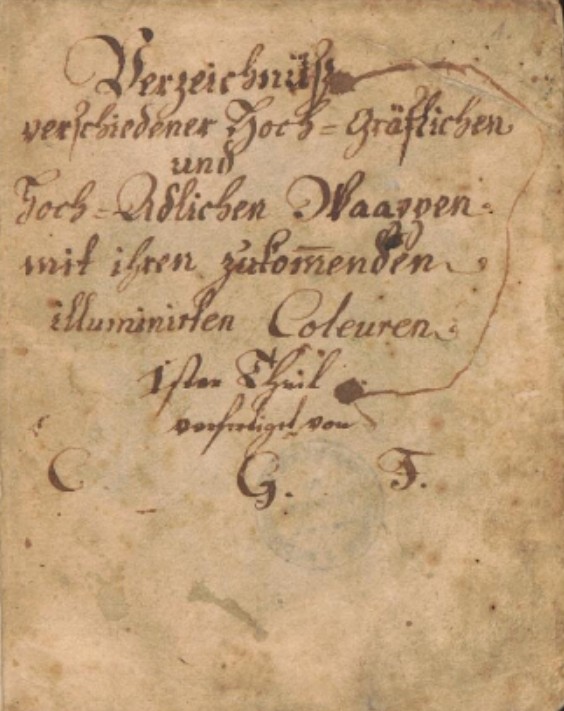 Verzeichnüß
verschiedener Hoch=Gräflichen
und
Hoch=Adlichen Waappen
mit ihren zukom̅enden
illuminirten Coleuren
1ster Theil
verfertiget von
C G. F.